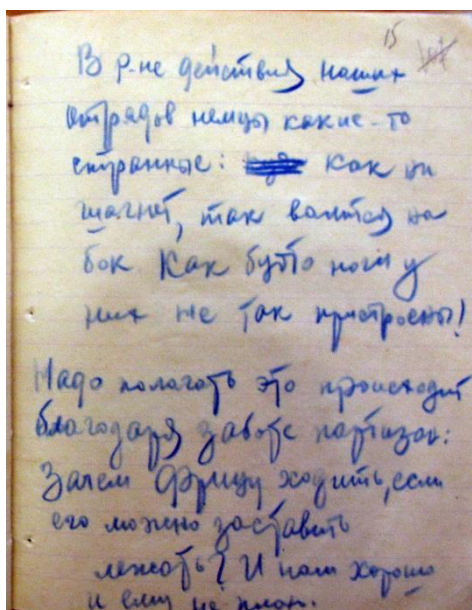 15
В р-не действия наших
отрядов немцы какие-то
странные: как ни
шагнет, так валится на
бок. Как будто ноги у
них не так пристроены!
Надо полагать это происходит
благодаря заботе партизан:
Зачем Фрицу ходить, если
его можно заставить
лежать? И нам хорошо
и ему не плохо.